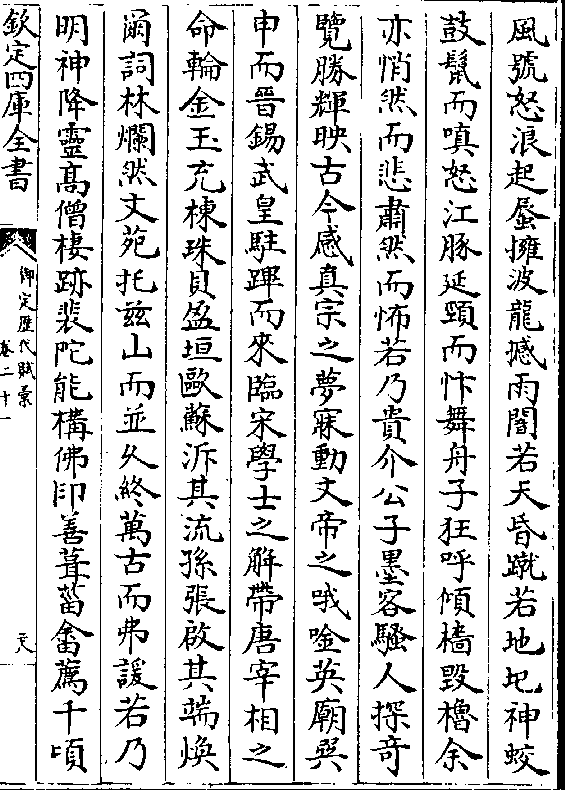 風號怒浪起蜃擁波龍撼雨闇若天昏蹴若地圮神蛟
鼓鬣而嗔怒江豚延頸而忭舞舟子狂呼傾檣毀櫓余
亦悄然而悲肅然而怖若乃貴介公子墨客騷人探奇
覽勝輝映古今感真宗之夢寐動文帝之哦唫英廟巽
申而晉錫武皇駐蹕而來臨宋學士之解帶唐宰相之
命輪金玉充棟珠貝盈垣歐蘇泝其流孫張啟其端煥
爾詞林爛然文苑托兹山而並久終萬古而弗諼若乃
明神降靈髙僧棲跡裴陀能構佛印善葺菑畬薦千頃
欽定四庫全書
御定歴代賦彙
卷二十一